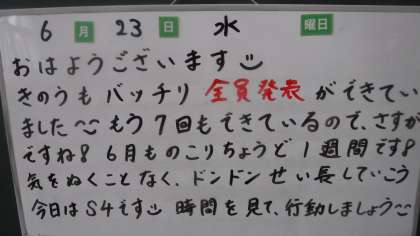 6月23日 水 曜日
おはようございます
きのうも バッチリ 全員発表 ができてい
ました もう7回もできているので、さすが
ですね! 6月ものこりちょうど1週間です!
気をぬくことなく、ドンドンせい長していこう
今日はS4です 時間を見て、行動しましょう